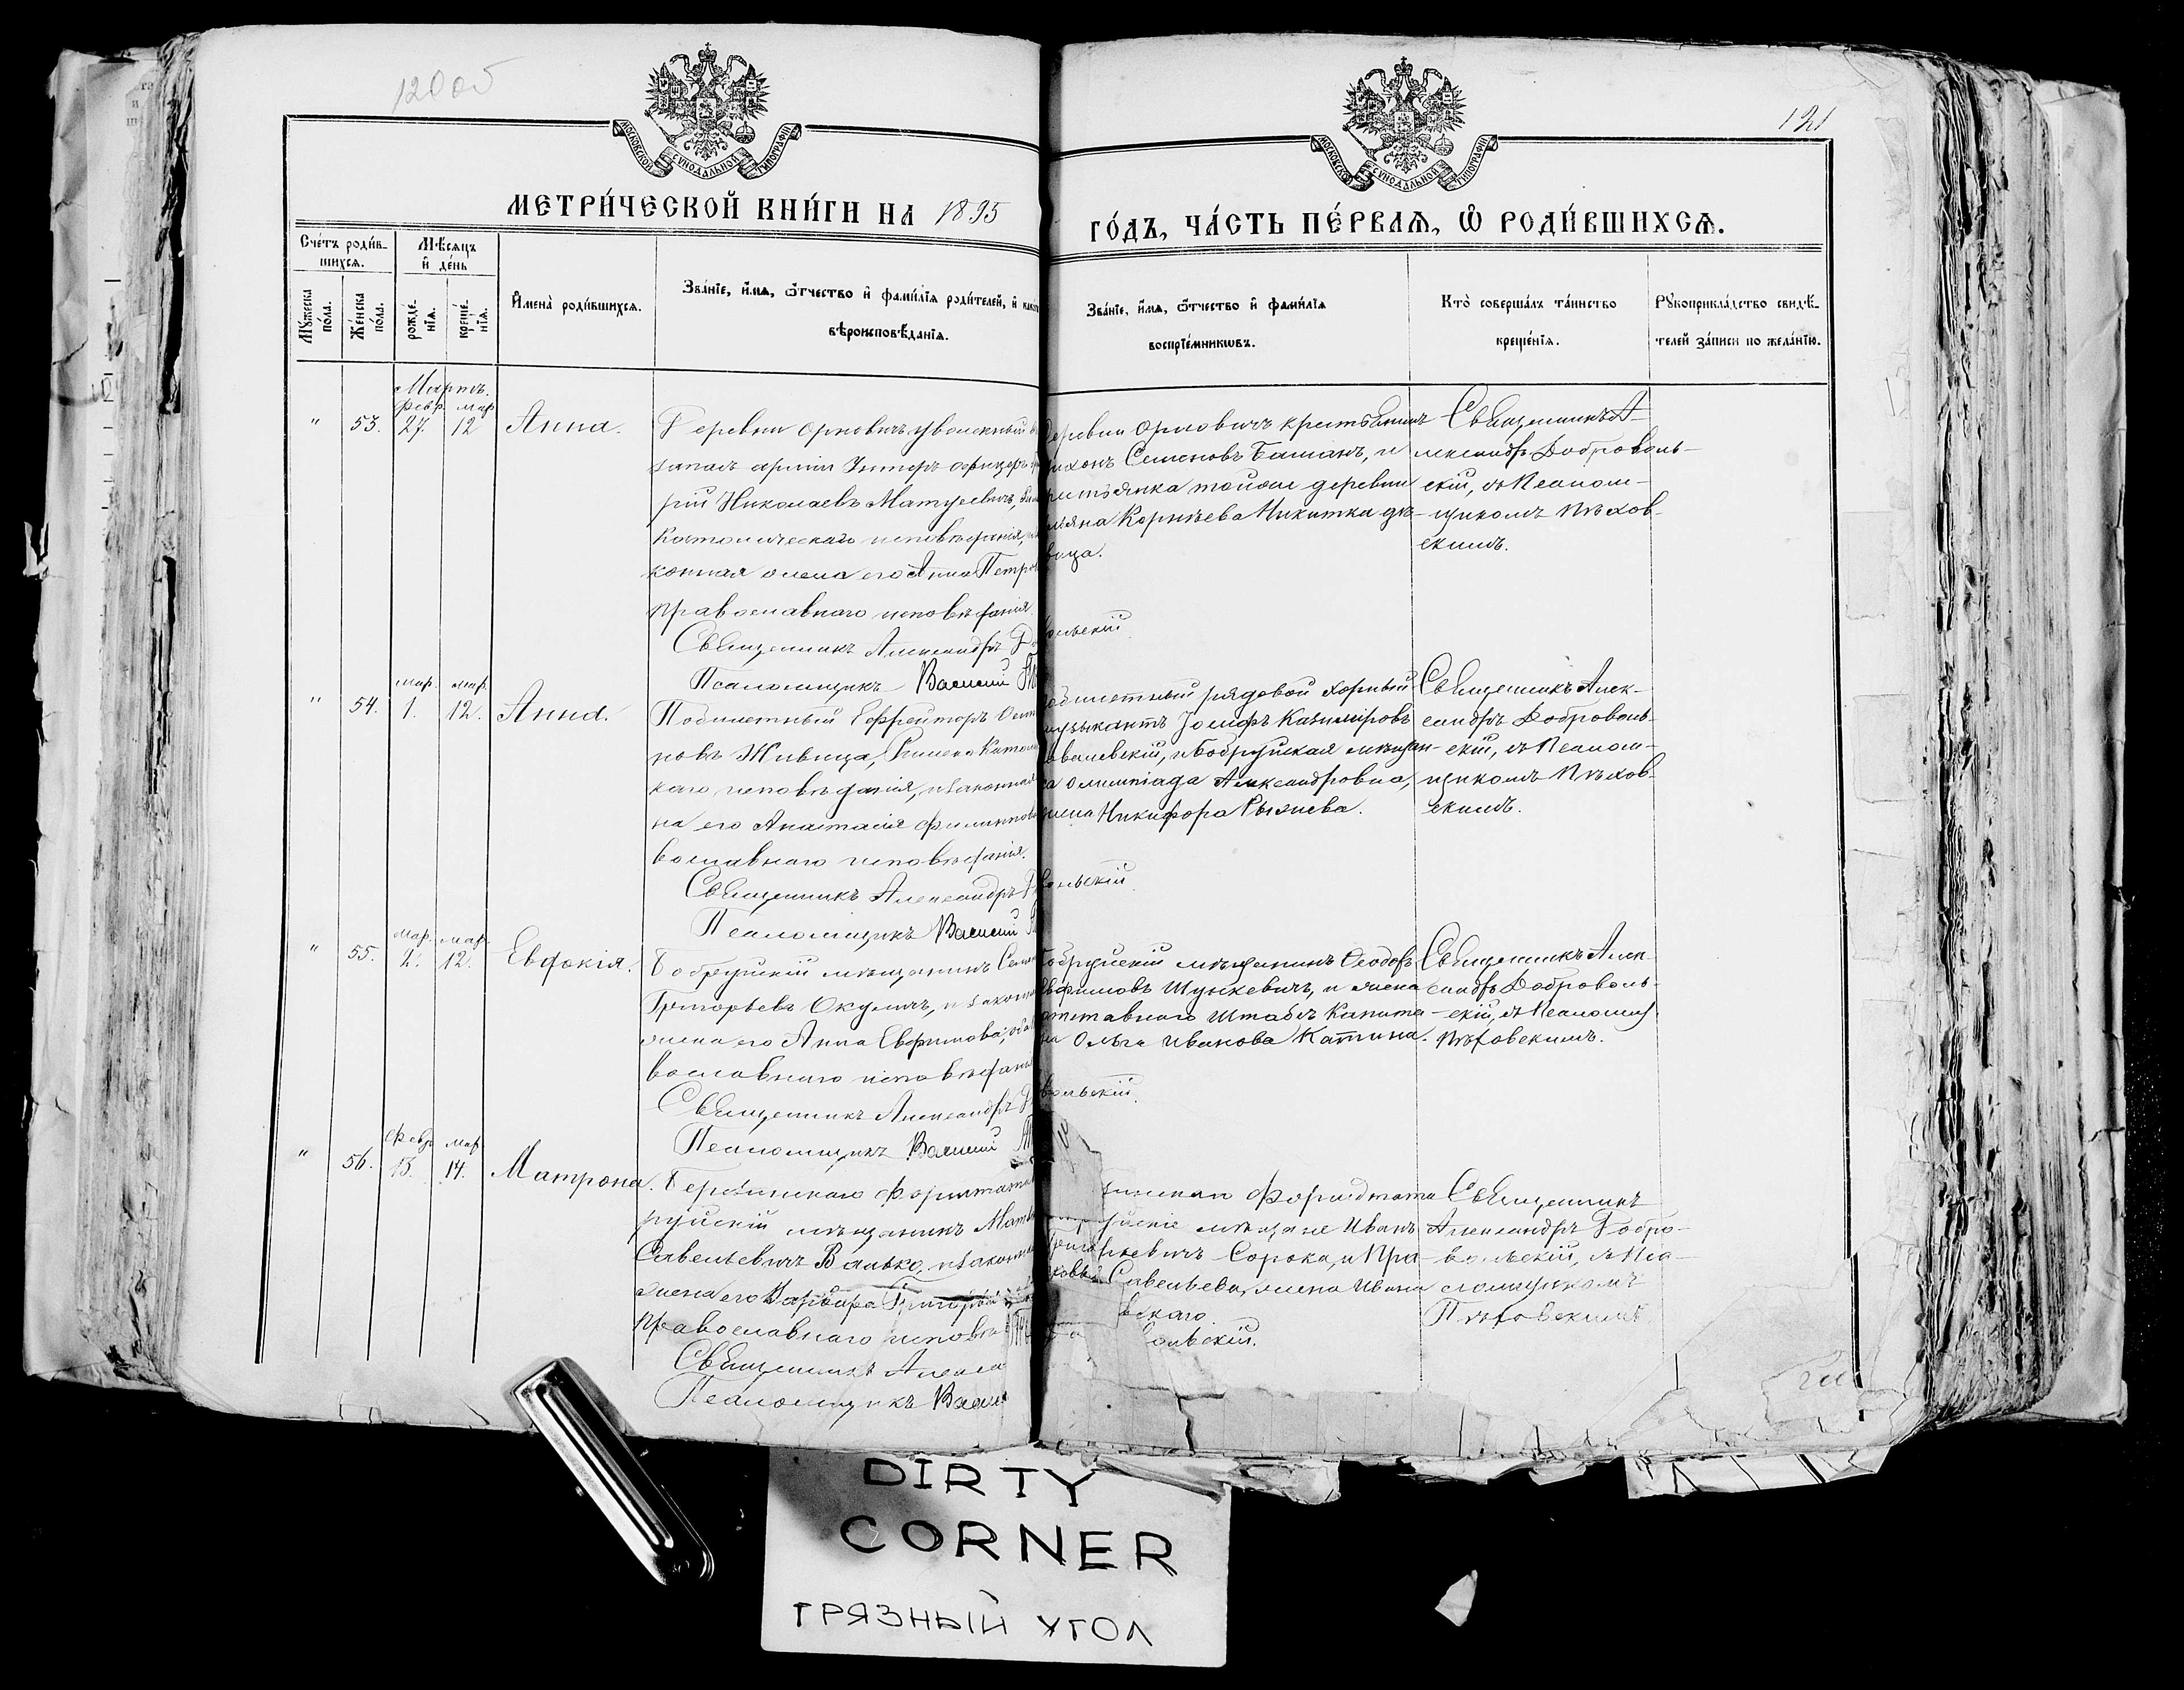 120об
121
МОСКОВСКОЙ СУНОДАЛЬНОЙ ТИПОГРАФІИ
МОСКОВСКОЙ СУНОДАЛЬНОЙ ТИПОГРАФІИ
МЕТРИ́ЧЕСКОЙ КНИ́ГИ НА 1895
ГО́ДЪ, ЧА́СТЬ ПЕ́РВАѦ, Ѡ҆ РОДИ́ВШИХСѦ.
Сче́тъ роди́в-
шихсѧ.
Мѣ́сѧцъ
и҆ де́нь
Мꙋ́жеска
по́ла.
Же́нска
по́ла.
рожде́-
нїѧ.
креще́-
нїѧ.
И҆мена̀ роди́вшихсѧ.
Зва́нїе, и҆́мѧ, ѻ҆́тчество и҆ фами́лїѧ роди́телей, и҆
вѣроисповѣ́данїѧ.
Зва́нїе, и҆́мѧ, ѻ҆́тчество и҆ фами́лїѧ
воспрїе́мникѡвъ.
Кто̀ соверша́лъ та́инство
креще́нїѧ.
Рꙋкоприкла́дство свидѣ́-
телей за́писи по жела́нїю.
Мартъ.
" 53. февр. 27. мар 12 Анна.
Деревни Орловичъ уволенный въ
запасъ арміи Унтеръ офицеръ
рій Николаевъ Матусевичъ,
Католическаго исповѣданія,
конная жена его Анна Петров
православнаго исповѣданія.
Священникъ Александръ До
Псаломщикъ Василій
деревни Орловичъ крестьянинъ
Семеновъ Башанъ, и
тойже деревни
Корнѣева Никитка дѣ-
вица.
вольскій
Священникъ А-
лександръ Доброволь-
скій, съ Псалом-
щикомъ Пѣхов-
скимъ.
" 54. мар. 1. мар. 12. Анна.
Побилетный Ефрейторъ
новъ Живица, Римско Католи
каго исповѣданія, и законная
на его Анастасія Филиппова
вославнаго исповѣданія.
Священникъ Александръ
Псаломщикъ Василій
рядовой хорный
музыкантъ Іосифъ Казиміровъ
и Бобруйская мѣщан-
ка Олимпіада Александровна,
жена Никифора
вольскій
Священникъ Алек-
сандръ Доброволь-
скій, съ Псалом-
щикомъ Пѣхов-
скимъ.
" 55. мар. 2. мар. 12. Евдокія.
Бобруйскій мѣщанинъ Семе
Григорьевъ Окуличъ, и законн
жена его Анна Евфимова;
вославнаго исповѣдан
Священникъ Александръ
Псаломщикъ Василій
Бобруйскій мѣщанинъ Ѳеодоръ
Евфимовъ Шункевичъ, и жена
отставнаго Штабсъ Капита-
на Ольга Иванова Катина.
вольскій.
Священникъ Алек-
сандръ Доброволь-
скій, съ Псаломщ.
Пѣховскимъ.
" 56. февр. 15. мар. 14. Матрона.
Березинскаго Форштата
руйскій мѣщанинъ Матв
Савельевичъ Валько, и законная
жена его Варвара
Православнаго исповѣ
Священникъ Алекса
Псаломщикъ Васил
Форштата
мѣщане Иванъ
Сорока, и Пра-
сковья Савельева, жена Ивана
скаго.
вольскій.
Священникъ
Александръ Добро-
вольскій, съ Пса-
ломщикомъ
Пѣховскимъ
DIRTY
CORNER
ГРЯЗНЫЙ УГОЛ